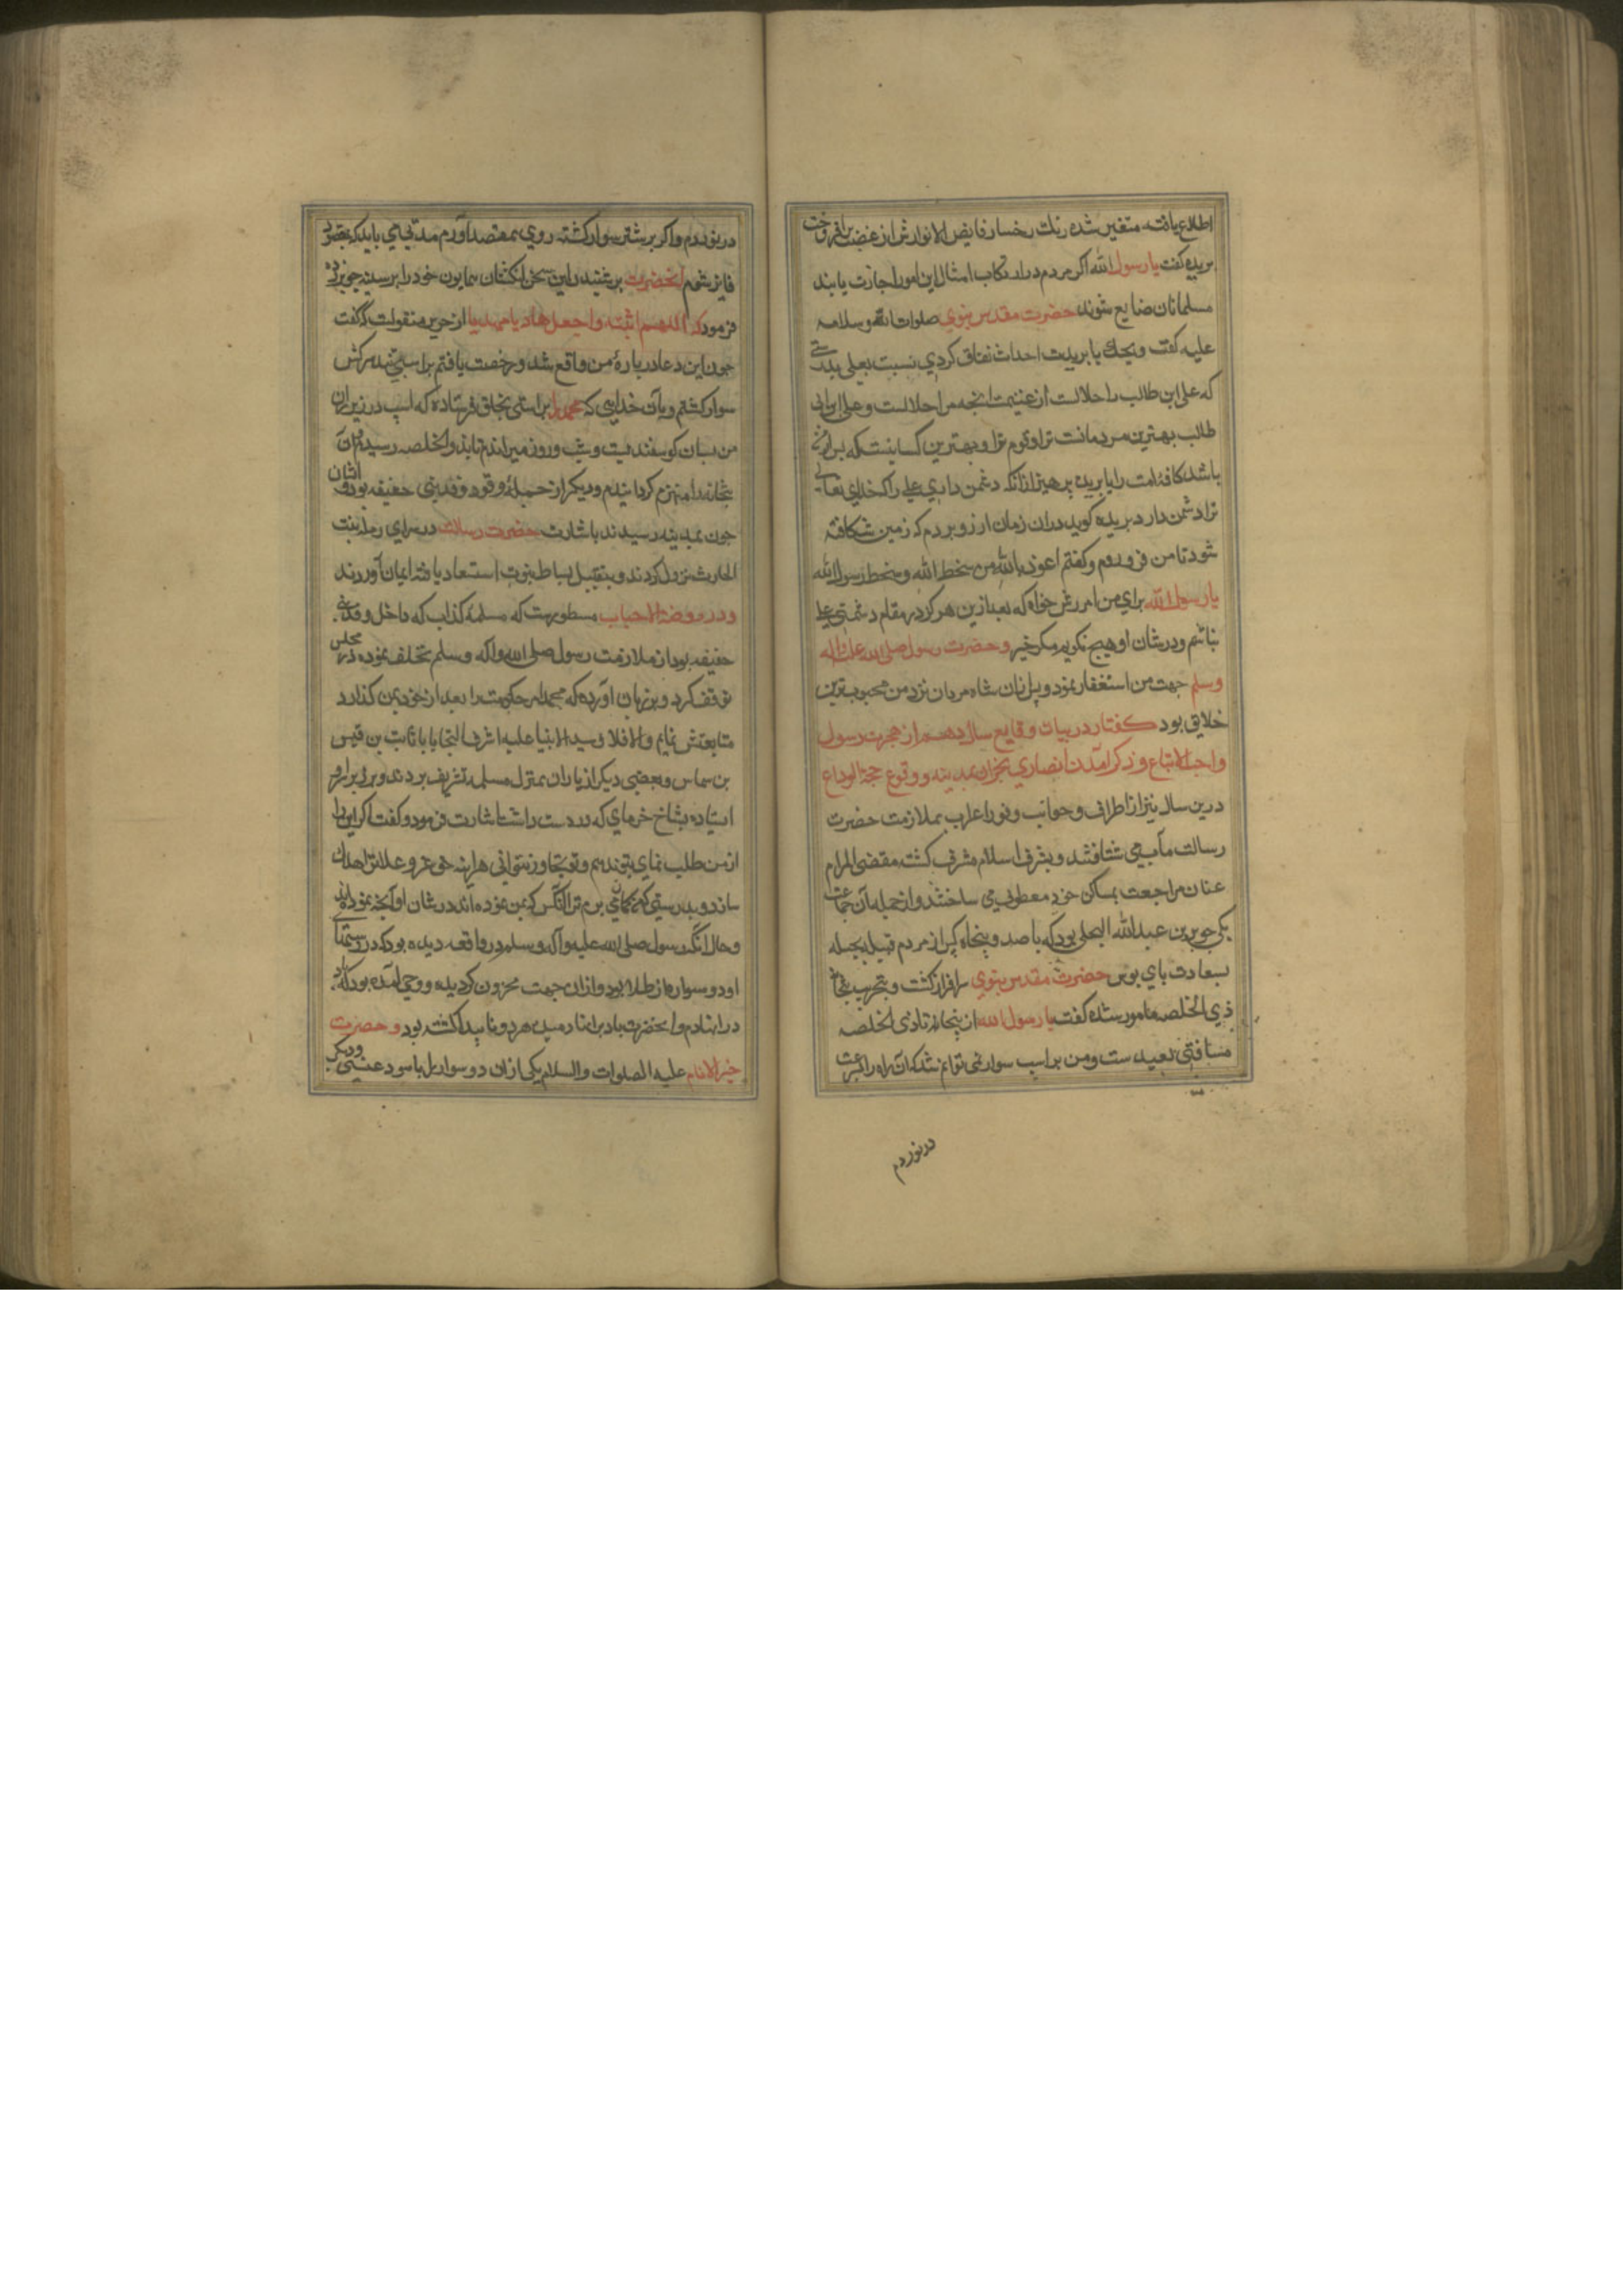 اطلاع یافته متغیر شده رنك رخسار فایض الانوارش از غضب برافروخت
بریده گفت یا رسول الله اکر مردم در ارتکاب امثال این امور اجازت یابند
مسلمانان ضایع شوند حضرت مقدس نبوی صلوات الله وسلامه
علیه گفت ویحك یا بریده احداث نفاق کردی نسبت بعلی بدرستی
که علی ابن طالب را حلالست از غنیمت انچه مرا حلالست وعلی ابن ابی
طالب بهترین مردمانست ترا وقوم ترا وبهترین کسانیست که پس از من
باشد کافه امت را یا بریده پرهیز از انکه دشمن داری علی را که خدای تعالی
ترا دشمن دارد بریده کوید دران زمان ارزو بردم که زمین شکافته
شود تا من فرو روم وکفتم اعوذ بالله من سخط الله وسخط رسول الله
یا رسول الله برای من امرزش خواه که بعد ازین هرکز در مقام دشمنی علی
نباشم ودر شان او هیچ نکویم مکر خیر وحضرت رسول صلی الله علیه واله
وسلم جهت من استغفار نمود وپس ازان شاه مردان نزد من محبوب ترین
خلایق بود کفتار در بیان وقایع سال دهم از هجرت رسول
واجب الاتباع وذکر آمدن انصاری نجران بمدینه ووقوع حجة الوداع
درین سال نیز از اطراف وجوانب وفود اعراب بملازمت حضرت
رسالت مآب می شتافتند وبشرف اسلام مشرف کشته مقضی المرام
عنان مراجعت بمساکن خود معطوف می ساختند وازجمله آن جماعت
یکی جریر بن عبدالله البجلی بود که با صد وپنجاه کس از مردم قبیله بجیله
بسعادت پای بوس حضرت مقدس نبوی سرافراز کشت وبتخریب بتخانه
ذی الخلصه مامور شده کفت یا رسول الله از ینجا تا ذی الخلصه
مسافتی بعید ست ومن بر اسپ سوار نمی توانم شد که آن راه را بسرعت
در نوردم
در نوردم واکر بر شتر سوار کشته روی بمقصد آورم مدتی می باید که بمقصود
فایز شوم انحضرت بر شنیدن این سخن انکشتان همایون خود را بر سینه جریر زده
فرمود که اللهم اثبته واجعل هادیا مهدیا از جریر منقولست که گفت
چون این دعا در بارهٔ من واقع شد ورخصت یافتم بر اسپی تند سرکش
سوار کشتم وبآن خدایی که محمد را براستی بخلق فرستاده که اسپ در زیر ران
من بسان کوسفند میرفت وشب وروز میراندم تا بذوالخلصه رسیدم وآن
بتخانه را منهدم کردانیدم ودیکر از جمله وفود وفد بنی حنیفه بود وایشان
چون بمدینه رسیدند باشارت حضرت رسالت در سرای رمله بنت
الحارث نزول کردند وبتقبیل بساط نبوت استسعاد یافته ایمان آوردند
ودر روضة الاحباب مسطورست که مسلمهٔ کذاب که داخل وفد بنی
حنیفه بود از ملازمت رسول صلی الله واله وسلم تخلف نموده در مجلس
توقف کرد وبر زبان اورد که محمد امر حکومت را بعد از خود بمن کذارد
متابعتش نمایم والا فلا وسید الانبیا علیه اشرف التحایا با ثابت بن قیس
بن شماس وبعضی دیکر از یاران بمنزل مسلمه تشریف بردند وبر بر او
استاده بشاخ خرمای که در دست داشت اشارت فرمود وکفت اکر این را
از من طلب نمای بتو ندهم وتو تجاوز نتوانی هر اینه حق عز وعلا ترا هلاك
سازد وبدرستی که کمان می برم ترا آنکس که بمن نموده اند در شان او آنچه نموده اند
وحال انکه رسول صلی الله علیه وآله وسلم در واقعه دیده بود که در دستهای
او دو سواره از طلا بود وازان جهت محزون کردیده ووحی آمده بود که باد
در انها دم وانحضرت باد بر انها دمیده هردو ناپیدا کشته بود وحضرت
خیر الانام علیه الصلوات والسلام یکی ازان دو سوار بل باسود عنسی ودیکر